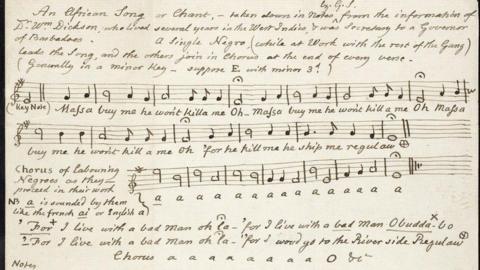 by G.S.
An African Song or Chant, - taken down in Notes, from the information of
Dr. Wm. Dickson, who lived several years in the West Indies, & was Secretary to a Governor
of Barbadoes. - A Single Negro (while at Work with the rest of the Gang)
leads the Song, and the others join in Chorus at the end of every verse. -
(Generally in a minor Key - suppose E with minor 3d.)
(Key Note) Massa buy me he won't killa me Oh - Massa buy me he won't kill a me Oh Massa
buy me he won't kill a me oh 'for he kill me he ship me regulaw ⊕
Chorus of Labouring
Negroes as they
proceed in their work
a a a a a a a a a a
NB a is sounded by them
like the french ai or English a)
'For + I live with a bad man oh la - 'for I live with a bad man Obudda- bo
'For I live with a bad man oh la - 'for I wou'd go to the River side Regulaw
Chorus a a a a a a a O &c
Notes